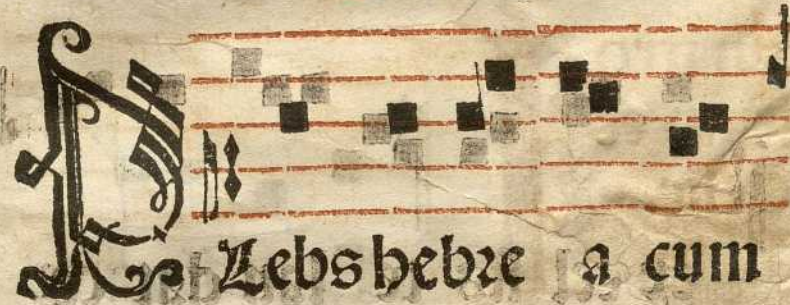 PLebs hebre a cum